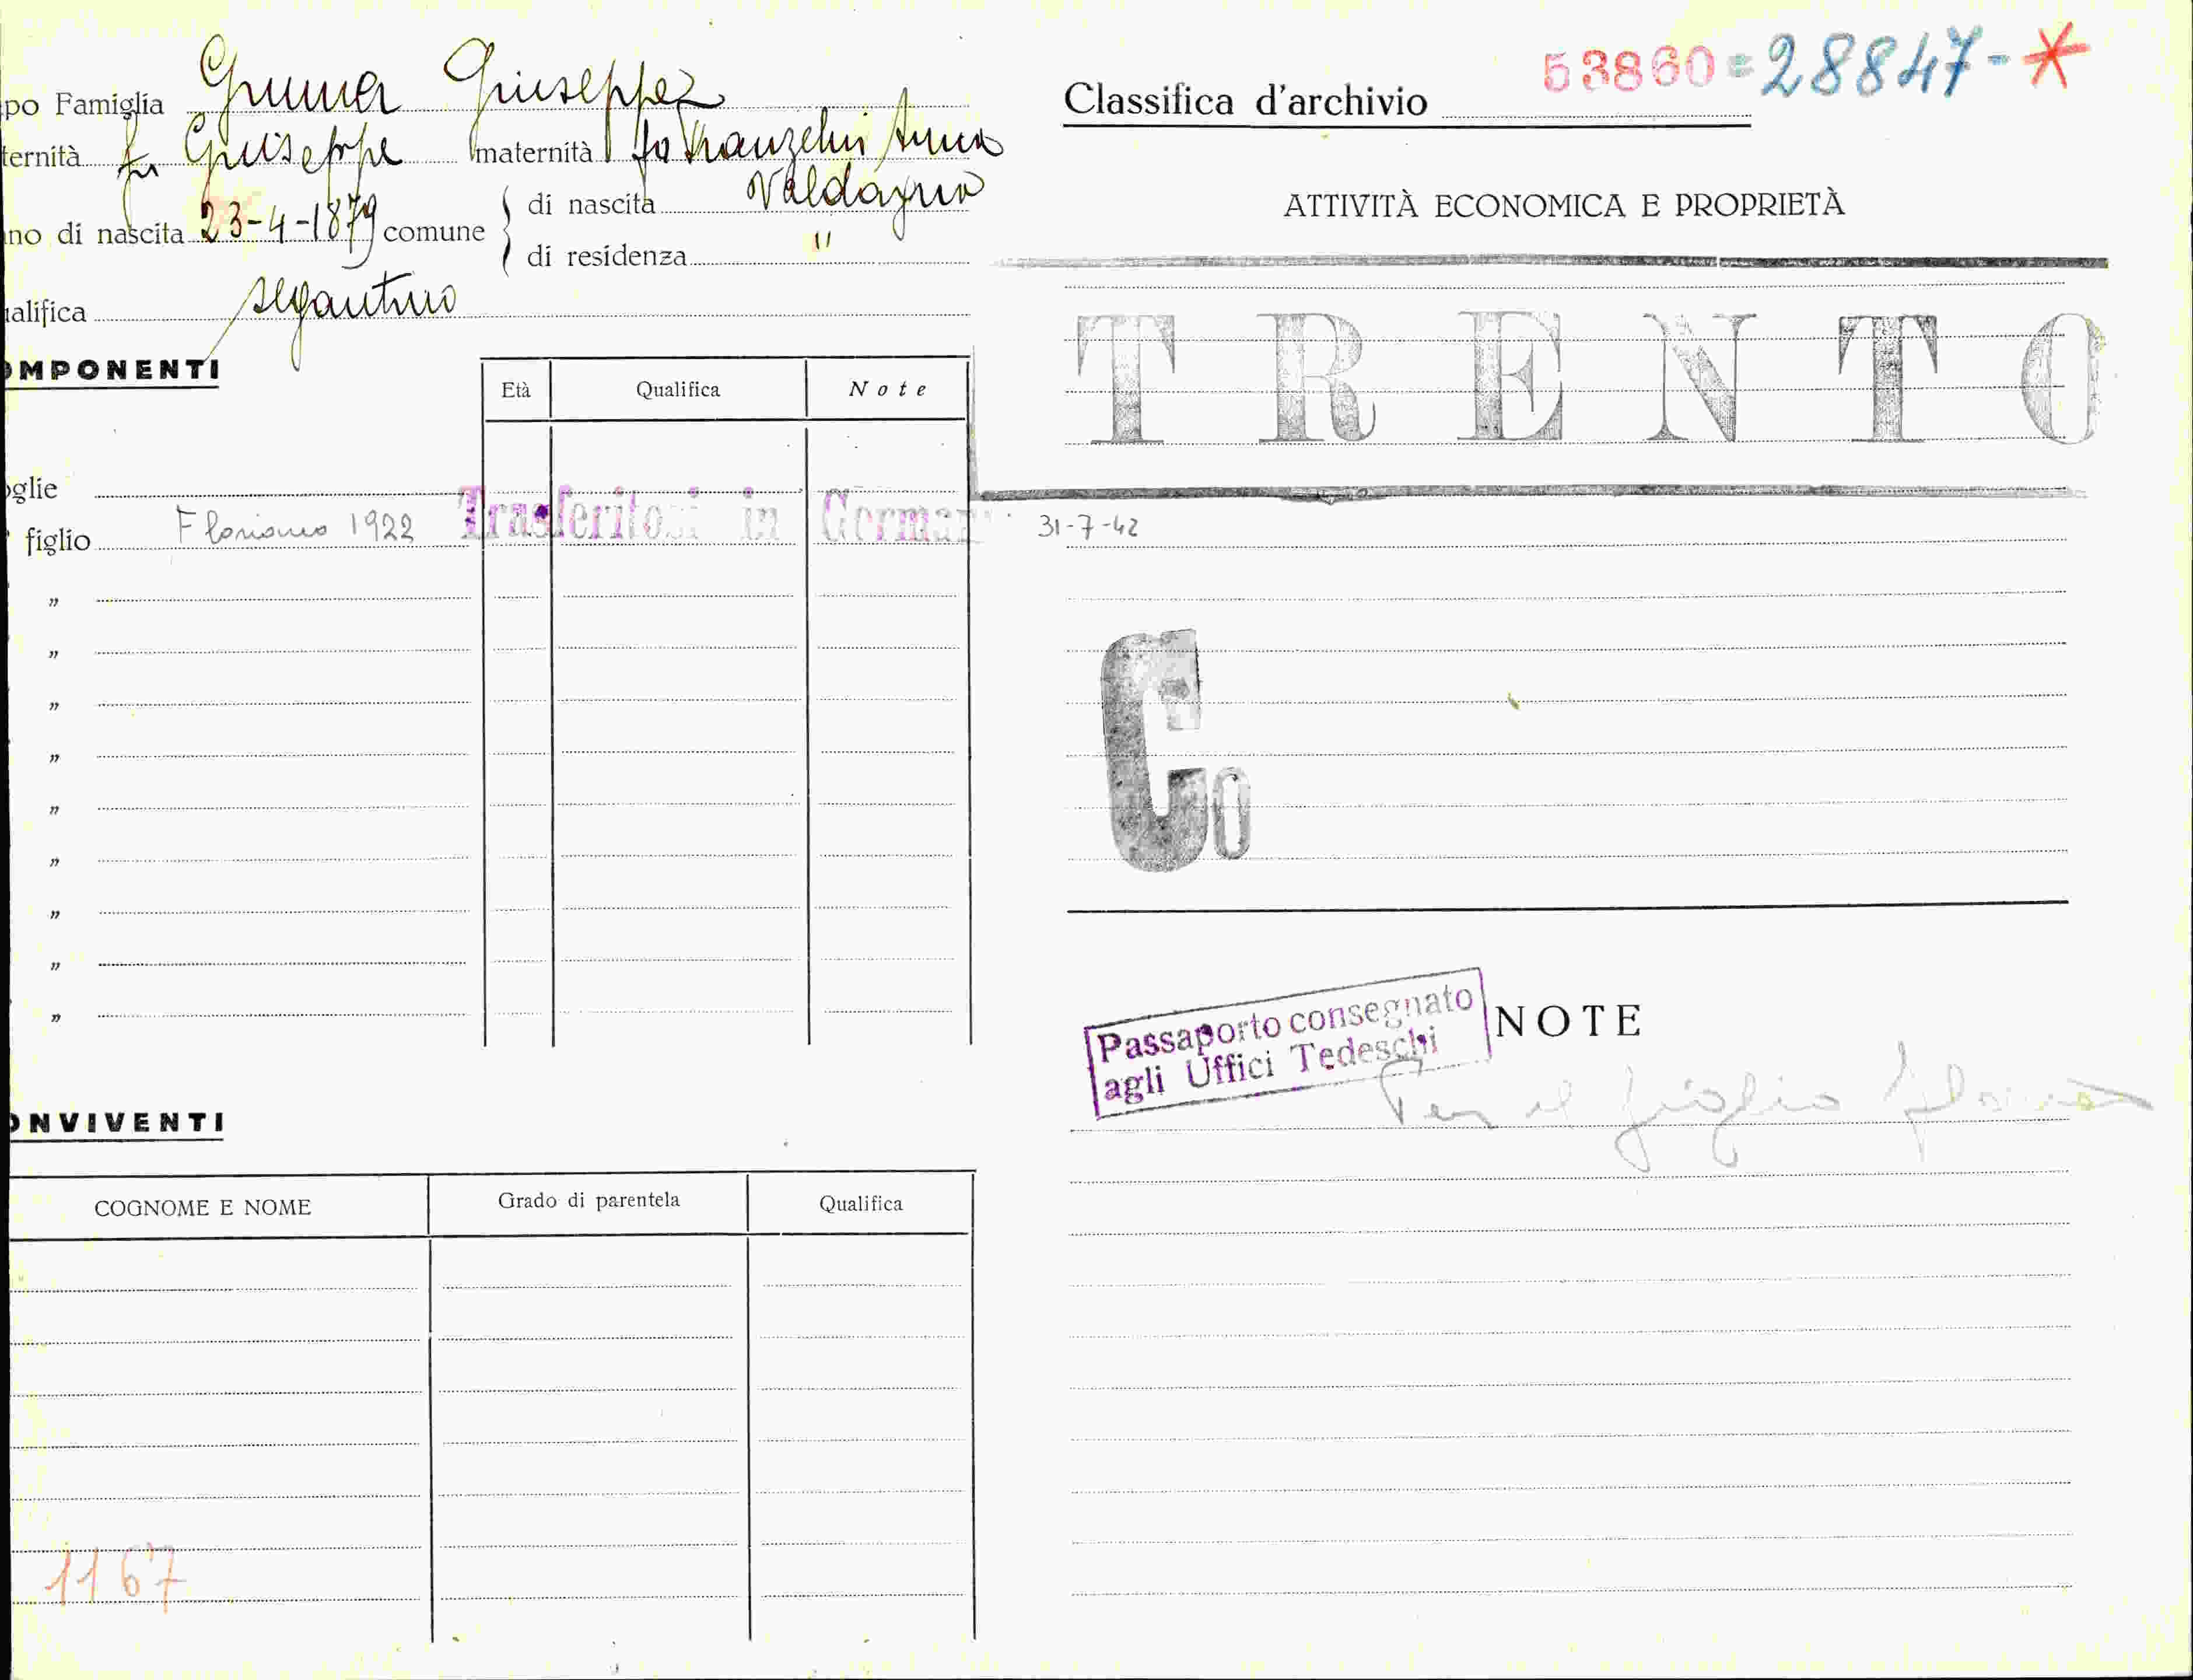 po Famiglia Gruner Giuseppe
ternità fu Giuseppe maternità fu Franzelin Anna
no di nascita 23-4-1879 comune di nascita Valdagno
di residenza "
alifica segantino
OMPONENTI
Età Qualifica Note
oglie
figlio Floriano 1922 Trasferitosi in German 31-7-42
"
"
"
"
"
"
"
"
"
ONVIVENTI
COGNOME E NOME Grado di parentela Qualifica
1167
Classifica d'archivio 53860=28847-*
ATTIVITÀ ECONOMICA E PROPRIETÀ
TRENTO
Co
Passaporto consegnato
agli Uffici Tedeschi
NOTE
Per il figlio